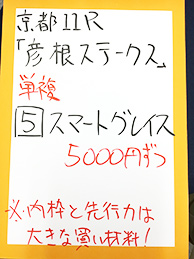 京都11R
「彦根ステークス」
単複
5 スマートグレイス
5000円ずつ
※内枠と先行力は
大きな買い材料!